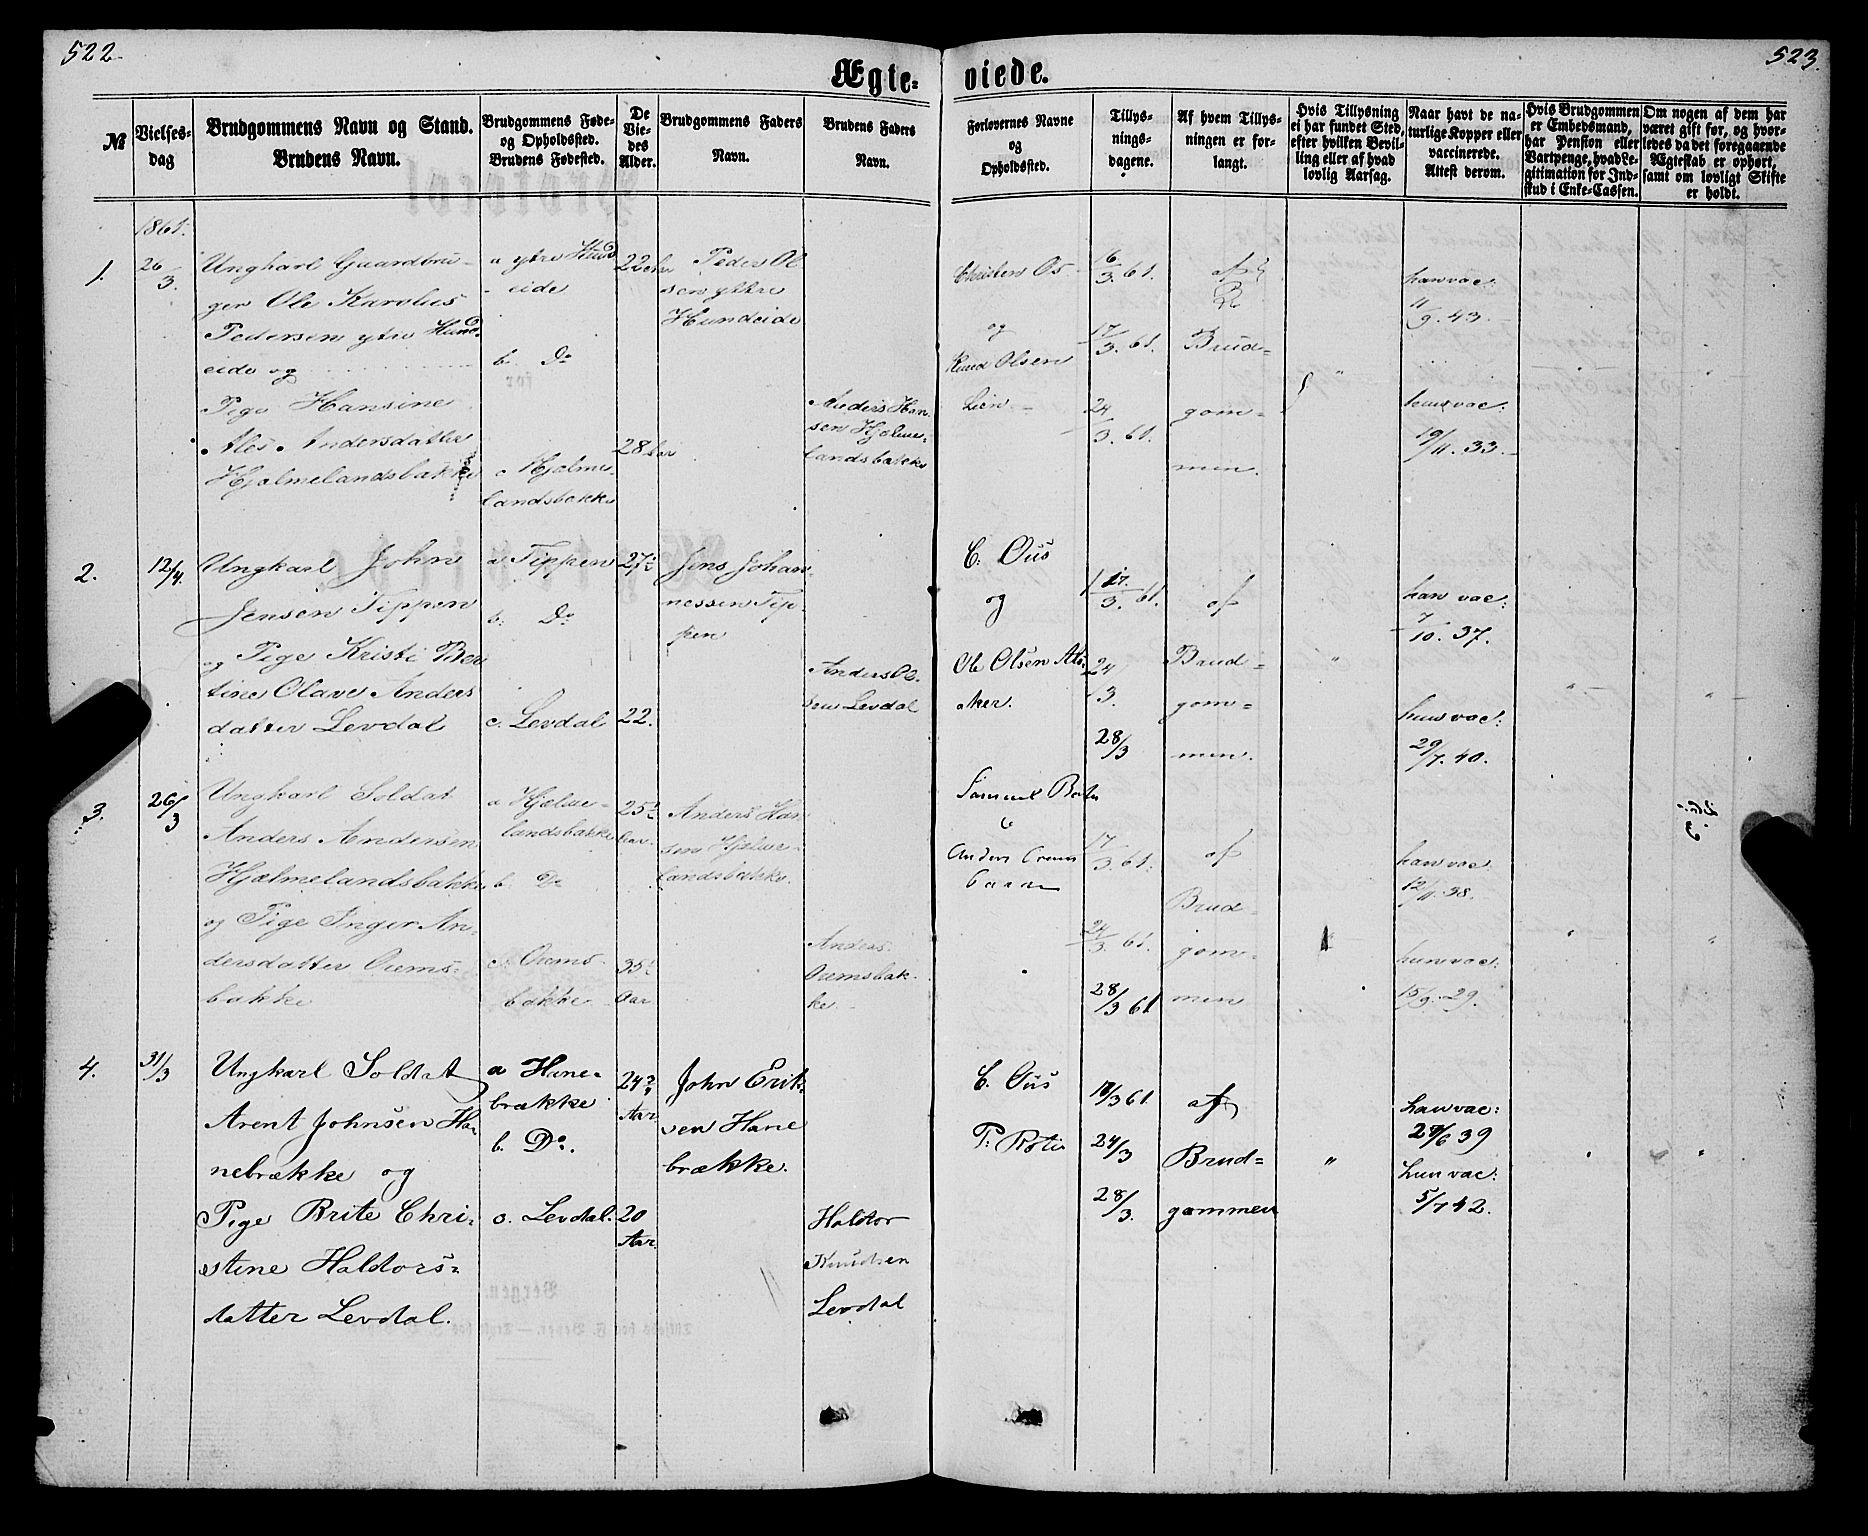 522.
523.
Ægte=
viede.
№
Vielses=
dag
Brudgommens Navn og Stand.
Brudens Navn.
Brudgommens Føde=
og Opholdssted.
Brudens Fødested.
De
Vie=
des
Alder.
Brudgommens Faders
Navn.
Brudens Faders
Navn.
Forlovernes Navne
og
Opholdssted.
Tillys=
nings=
dagene.
Af hvem Tillys=
ningen er for=
langt.
Hvis Tillysning
ei har fundet Sted,
efter hvilken Bevil=
ling eller af hvad
lovlig Aarsag.
Naar havt de na=
turlige Kopper eller
vaccinerede.
Attest derom.
Hvis Brudgommen
er Embedsmand,
har Pension eller
Vartpenge, hvad Le=
gitimation for Ind=
skud i Enke=Cassen.
Om nogen af dem har
været gift før, og hvor=
ledes da det foregaaende
Ægteskab er ophørt,
samt om lovligt Skifte
er holdt.
1861.
1.
26/3.
Ungkarl Gaardbru=
ger Ole Karolus
Pedersen ytre Hund=
eide og
Pige Hansine
Ales Andersdatter
Hjelmelandsbakke
a ytre Hund
eide
b. Do
c Hjelme=
landsbakke
22
28
Peder Ol
sen yttre
Hundeide
Anders Han=
sen Hjelme=
landsbakke
Christen Os
og
Knud Olsen
Lien
16/3. 61.
17/3. 61.
24/3. 61.
af
Brud=
gom=
men.
han vac:
11/9. 43.
hun vac:
19/11. 33.
2.
12/4.
Ungkarl John
Jensen Tippen
og Pige Kristi Ber
tine Olave Anders
datter Levdal
a Tippen
b. Do
c. Levdal
27
22.
Jens Johan
nessen Tip=
pen
Anders Ol=
sen Levdal
C. Ous
og
Ole Olsen
aker.
17/3. 61.
24/3.
28/3
af
Brud=
gom=
men.
han vac:
7/10. 37.
hun vac:
29/7. 40.
3.
26/3
Ungkarl Soldat
Anders Andersen
Hjelmelandsbakke
og Pige Inger An=
dersdatter Orems=
bakke
a Hjelme=
landsbakke
b. Do
c. Orems=
bakke
25
Aar.
35
Aar
Anders Han
sen Hjelme=
landsbakke.
Anders
Oremsbak=
ke.
Samuel
Anders
17/3. 61.
24/3. 61.
28/3 61
af
Brud=
gom=
men
han vac:
12/11. 38.
hun vac:
15/9. 29.
4.
31/3
Ungkarl Soldat
Arent Johnsen Ha=
nebrække og
Pige Brite Chri=
stine Haldors=
datter Levdal.
a Hane=
brække
b. Do.
c. Levdal.
24
Aar
20
Aar
John Erik=
sen Hane
brække.
Haldor
Knudsen
Levdal
C. Ous
P:
17/3 61
24/3
28/3.
af
Brud=
gommen
han vac:
39
hun vac:
5/7 42.